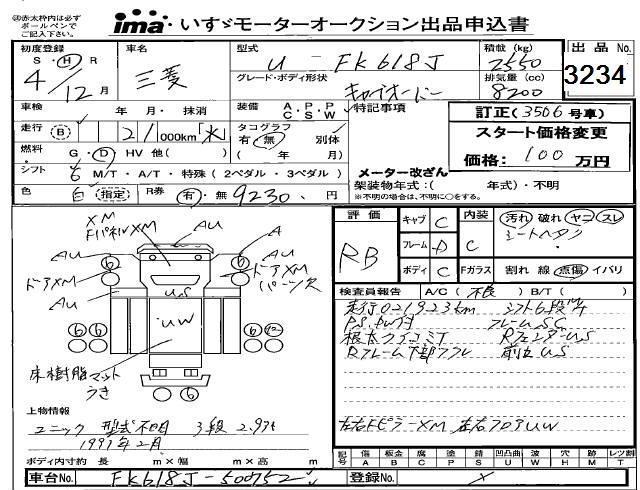 ㊟赤太枠内は必ず
ボールペンで
ご記入下さい。
ima いすゞモーターオークション出品申込書
初度登録 車名 型式 積載 (kg) 出品 No.
S・H・R 三菱 U - FK618J 2550
4/12月 グレード・ボディ形状 排気量 (cc) 3234
キャリオーバー 8200
車検 年・月・抹消 装備 A・P・P 特記事項 訂正(3506号車)
C・S・W
走行 B 21000km「水」 タコグラフ 有・無 別体 スタート価格変更
燃料 G・D HV 他( ) ( 年 月) 価格: 100 万円
シフト 6 M/T・A/T・特殊(2ペダル・3ペダル) メーター改ざん
架装物年式:( 年式)・不明
色 白 (指定) R券 有・無 9230.円 ※不明の場合は、不明に○をする。
XM
FパネルXM
AU AU A
ドアXM ドアXM
パーツ欠
AU AU
US
UW
床樹脂マット
うき
評価 キャブ C 内装 汚れ 破れ ヤコ スレ
RB フレーム D C シートヘタリ
ボディ C Fガラス 割れ 線 点傷 イバリ
検査員報告 A/C( 不良 ) B/T( )
走行021923km シフト6段
P.S. PW付 フレームSC
Rフェンダーus
Rフレーム下部
左右FピラーXM 左右フロアUW
上物情報
ユニック 型式不明 3段 2.93t
1997年2月
ボディ内寸約 長 m×幅 m×高 m
記号 傷 板金 腐 塗 サビ 凹凸曲 波 穴 跡 レツ割
A B C P S U W H M T
車台No. FK618J-500752 登録No.